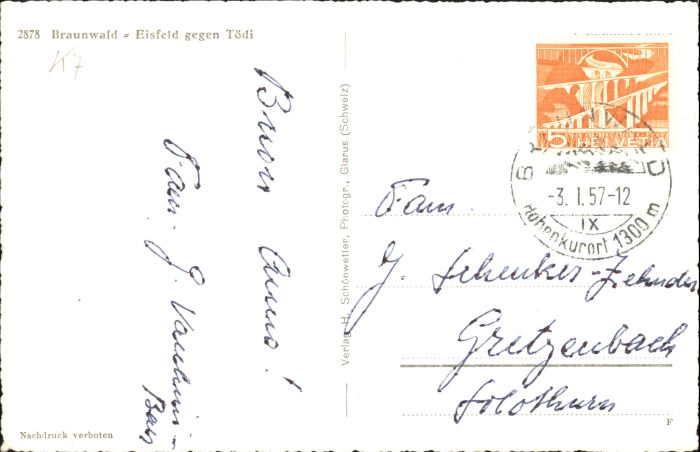 2878 Braunwald - Eisfeld gegen Tödi
K7
Buon Anno!
Fam. J.
Verlag H. Schönwetter, Photogr., Glarus (Schweiz)
5 HELVETIA
-3. I. 57-12
IX
Höhenkurort 1300 m
Fam.
J. Schenker-Zehnder
Gretzenbach
Solothurn
Nachdruck verboten
F